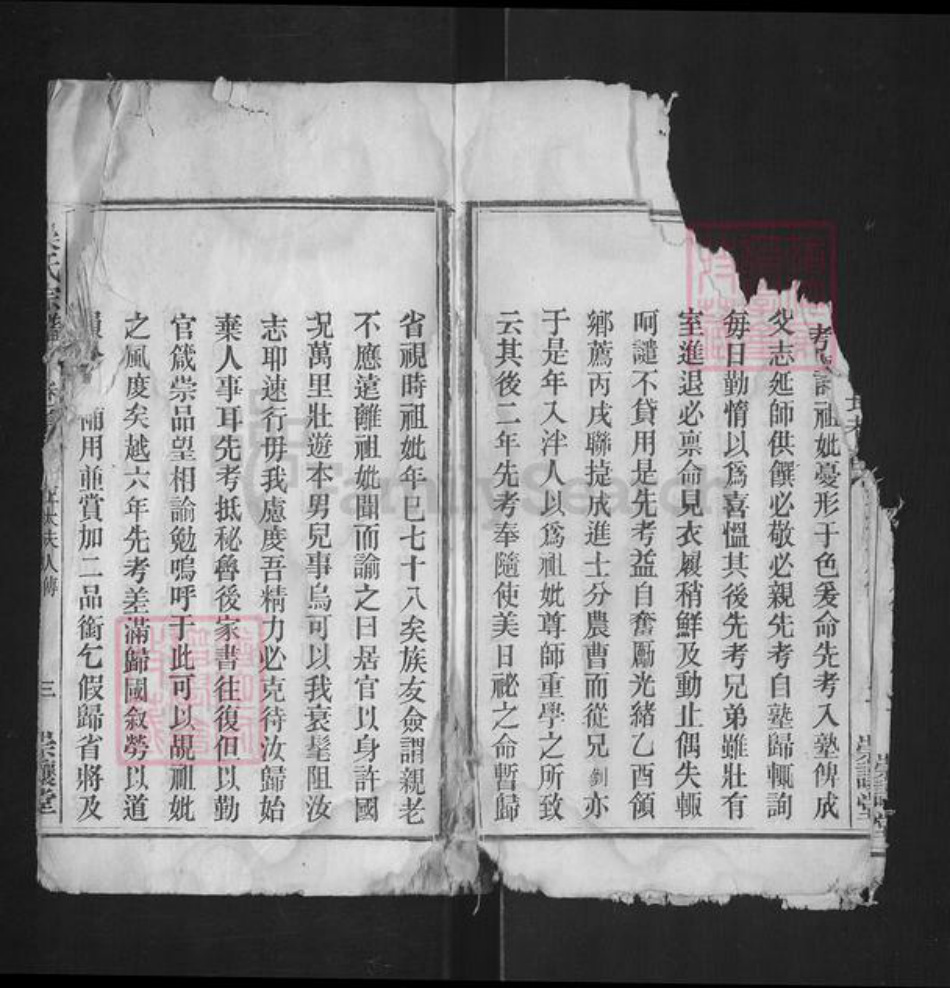 祖妣憂形于色爰命先考入塾俾成
父志延師供饌必敬必親先考自塾歸輒詢
每日勤惰以爲喜慍其後先考兄弟雖壯有
室進退必禀命見衣履稍鮮及動止偶失輒
呵譴不貸用是先考益自奮厲光緒乙酉領
鄉薦丙戌聯㨗成進士分農曹而從兄釗亦
于是年入泮人以爲祖妣尊師重學之所致
云其後二年先考奉隨使美日祕之命暫歸
省視時祖妣年巳七十八矣族友僉謂親老
不應遠離祖妣聞而諭之曰居官以身許國
况萬里壯遊本男兒事烏可以我衰髦阻汝
志耶速行毋我慮度吾精力必克待汝歸始
棄人事耳先考抵秘魯後家書往復但以勤
官箴崇品望相諭勉嗚呼于此可以覘祖妣
之風度矣越六年先考差滿歸國敘勞以道
補用並賞加二品銜乞假歸省將及
氏宗譜
太夫人傳
三
堂
FamilySearch